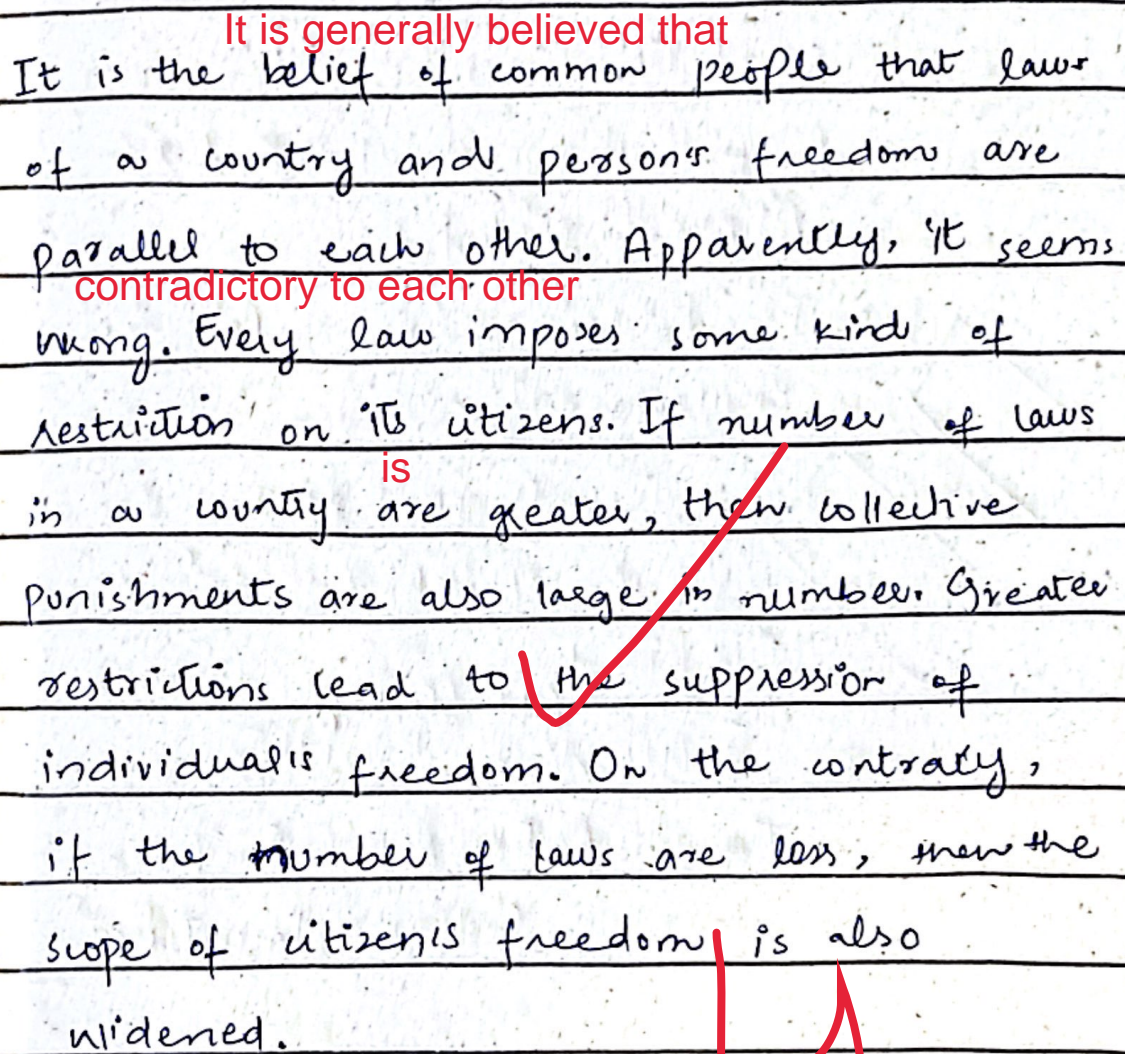 It is generally believed that
It is the belief of common people that laws
of a country and person's freedom are
parallel to each other. Apparently, it seems
contradictory to each other
wrong. Every law imposes some kind of
restriction on its citizens. If number of laws
is
in a country are greater, then collective
punishments are also large in number. Greater
restrictions lead to the suppression of
individual's freedom. On the contrary,
if the number of laws are less, then the
scope of citizen's freedom is also
widened.